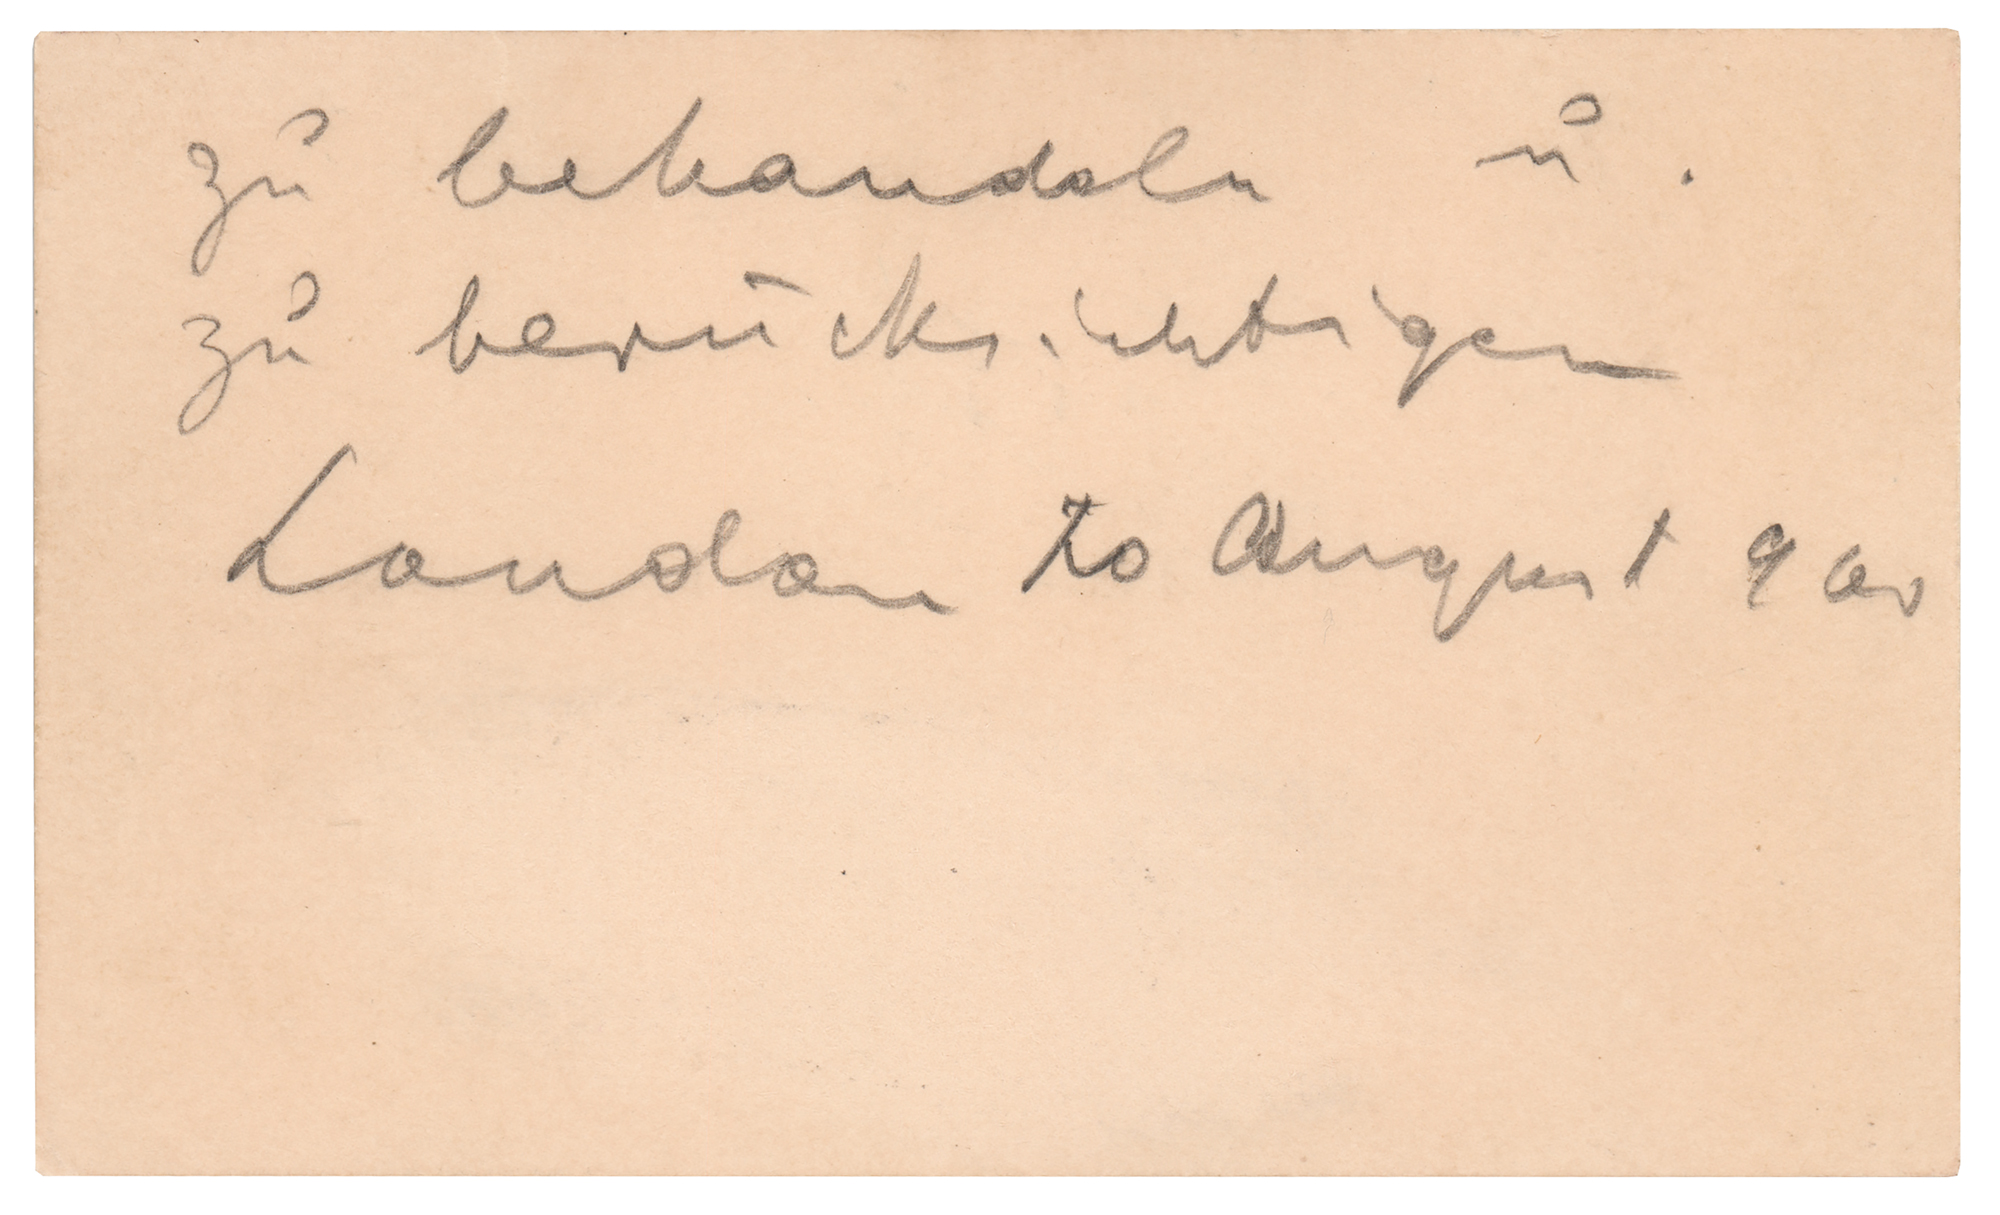 zu behandeln u.
zu berücksichtigen
London 20 August 900